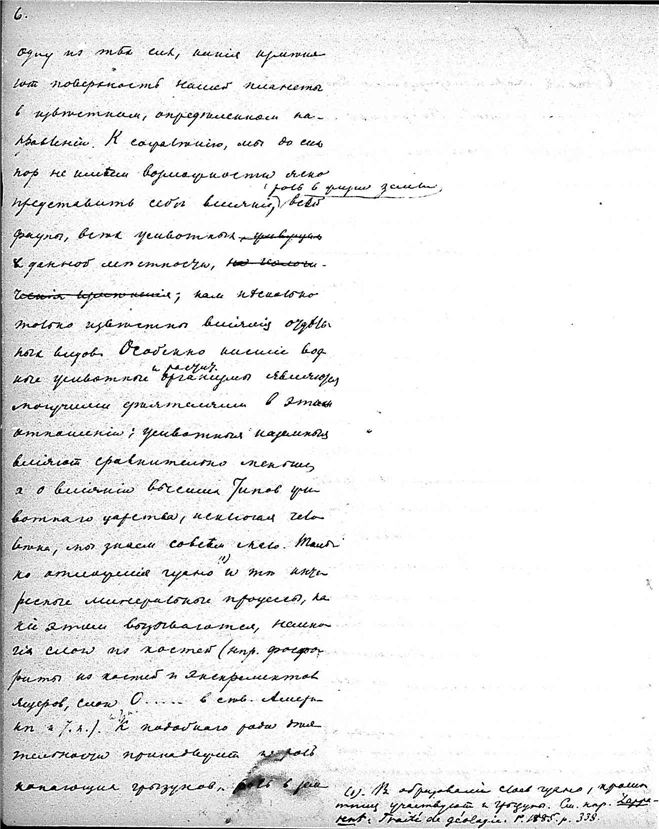 6.
одну из тѣх сил, какія измѣня
ют поверхность нашей планеты
в извѣстном, опредѣленном на-
правленіи. К сожалѣнію, мы до сих
пор не имѣем возможности ясно
роль в жизни земли
представить себѣ вліяніе всей
фауны, всѣх животных,
данной мѣстности,
; нам нѣсколько
только извѣстны вліянія отдѣль
ных видов. Особенно низшіе вод
и растит.
ные животные организмы являются
могучими дѣятелями в этом
отношеніи; животныя наземныя
вліяют сравнительно меньше,
а о вліяніи высших типов жи
вотнаго царства, исключая чело
вѣка, мы знаем совсѣм мало. Толь
ко отложенія гуано (1) и тѣ инте
ресные минеральные процессы, ка
кіе этим вызываются, немно
гія слои из костей (нпр. фосфо
риты из костей и экскрементов
ящеров, слои O..... в сѣв. Амери
кѣ и т. п.). К подобнаго рода дѣя
тельности принадлежит и роль
копающих грызунов. роль в
(1). В образованіи слоев гуано, кромѣ
птиц участвуют и грызуны. См. нпр. Lappa-
rent: Traité de géologie. P. 1885. p. 338.